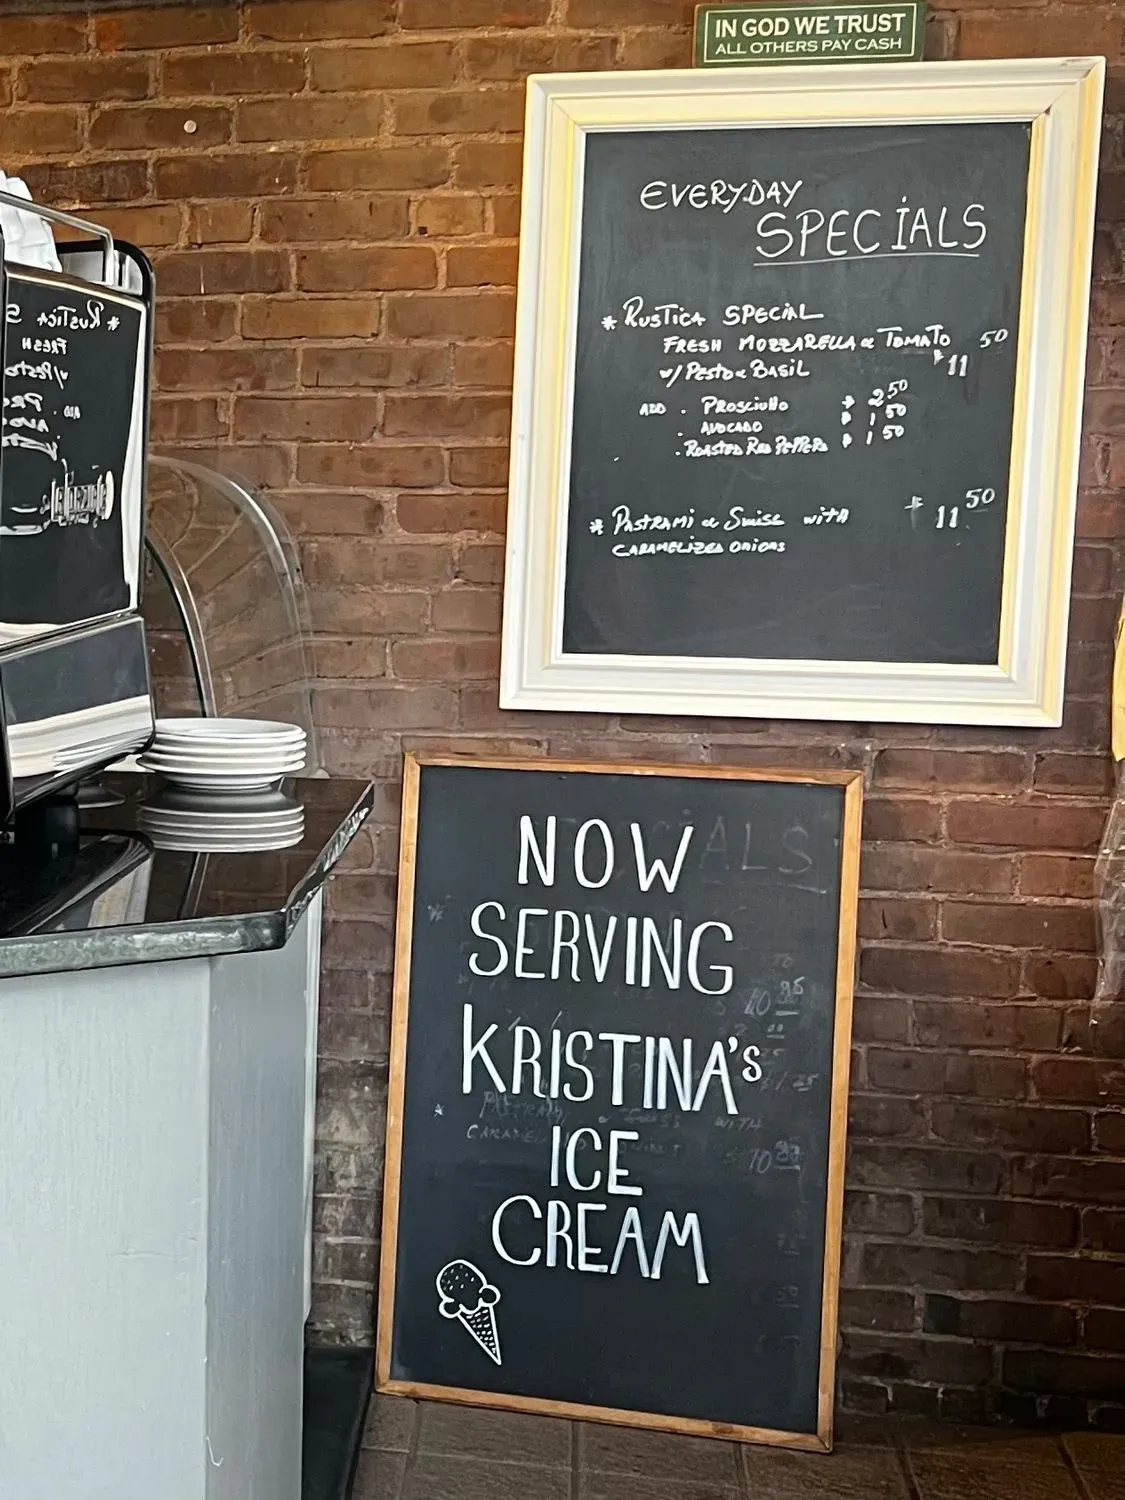 IN GOD WE TRUST
ALL OTHERS PAY CASH
EVERYDAY
SPECIALS
* RUSTICA SPECIAL
FRESH MOZZARELLA & TOMATO $11 50
w/ PESTO & BASIL
ADD . PROSCIUTTO $ 2 50
AVOCADO $ 1 50
. ROASTED RED PEPPERS $ 1 50
* PASTRAMI & SWISS WITH $ 11 50
CARAMELIZED ONIONS
NOW
SERVING
KRISTINA'S
ICE
CREAM